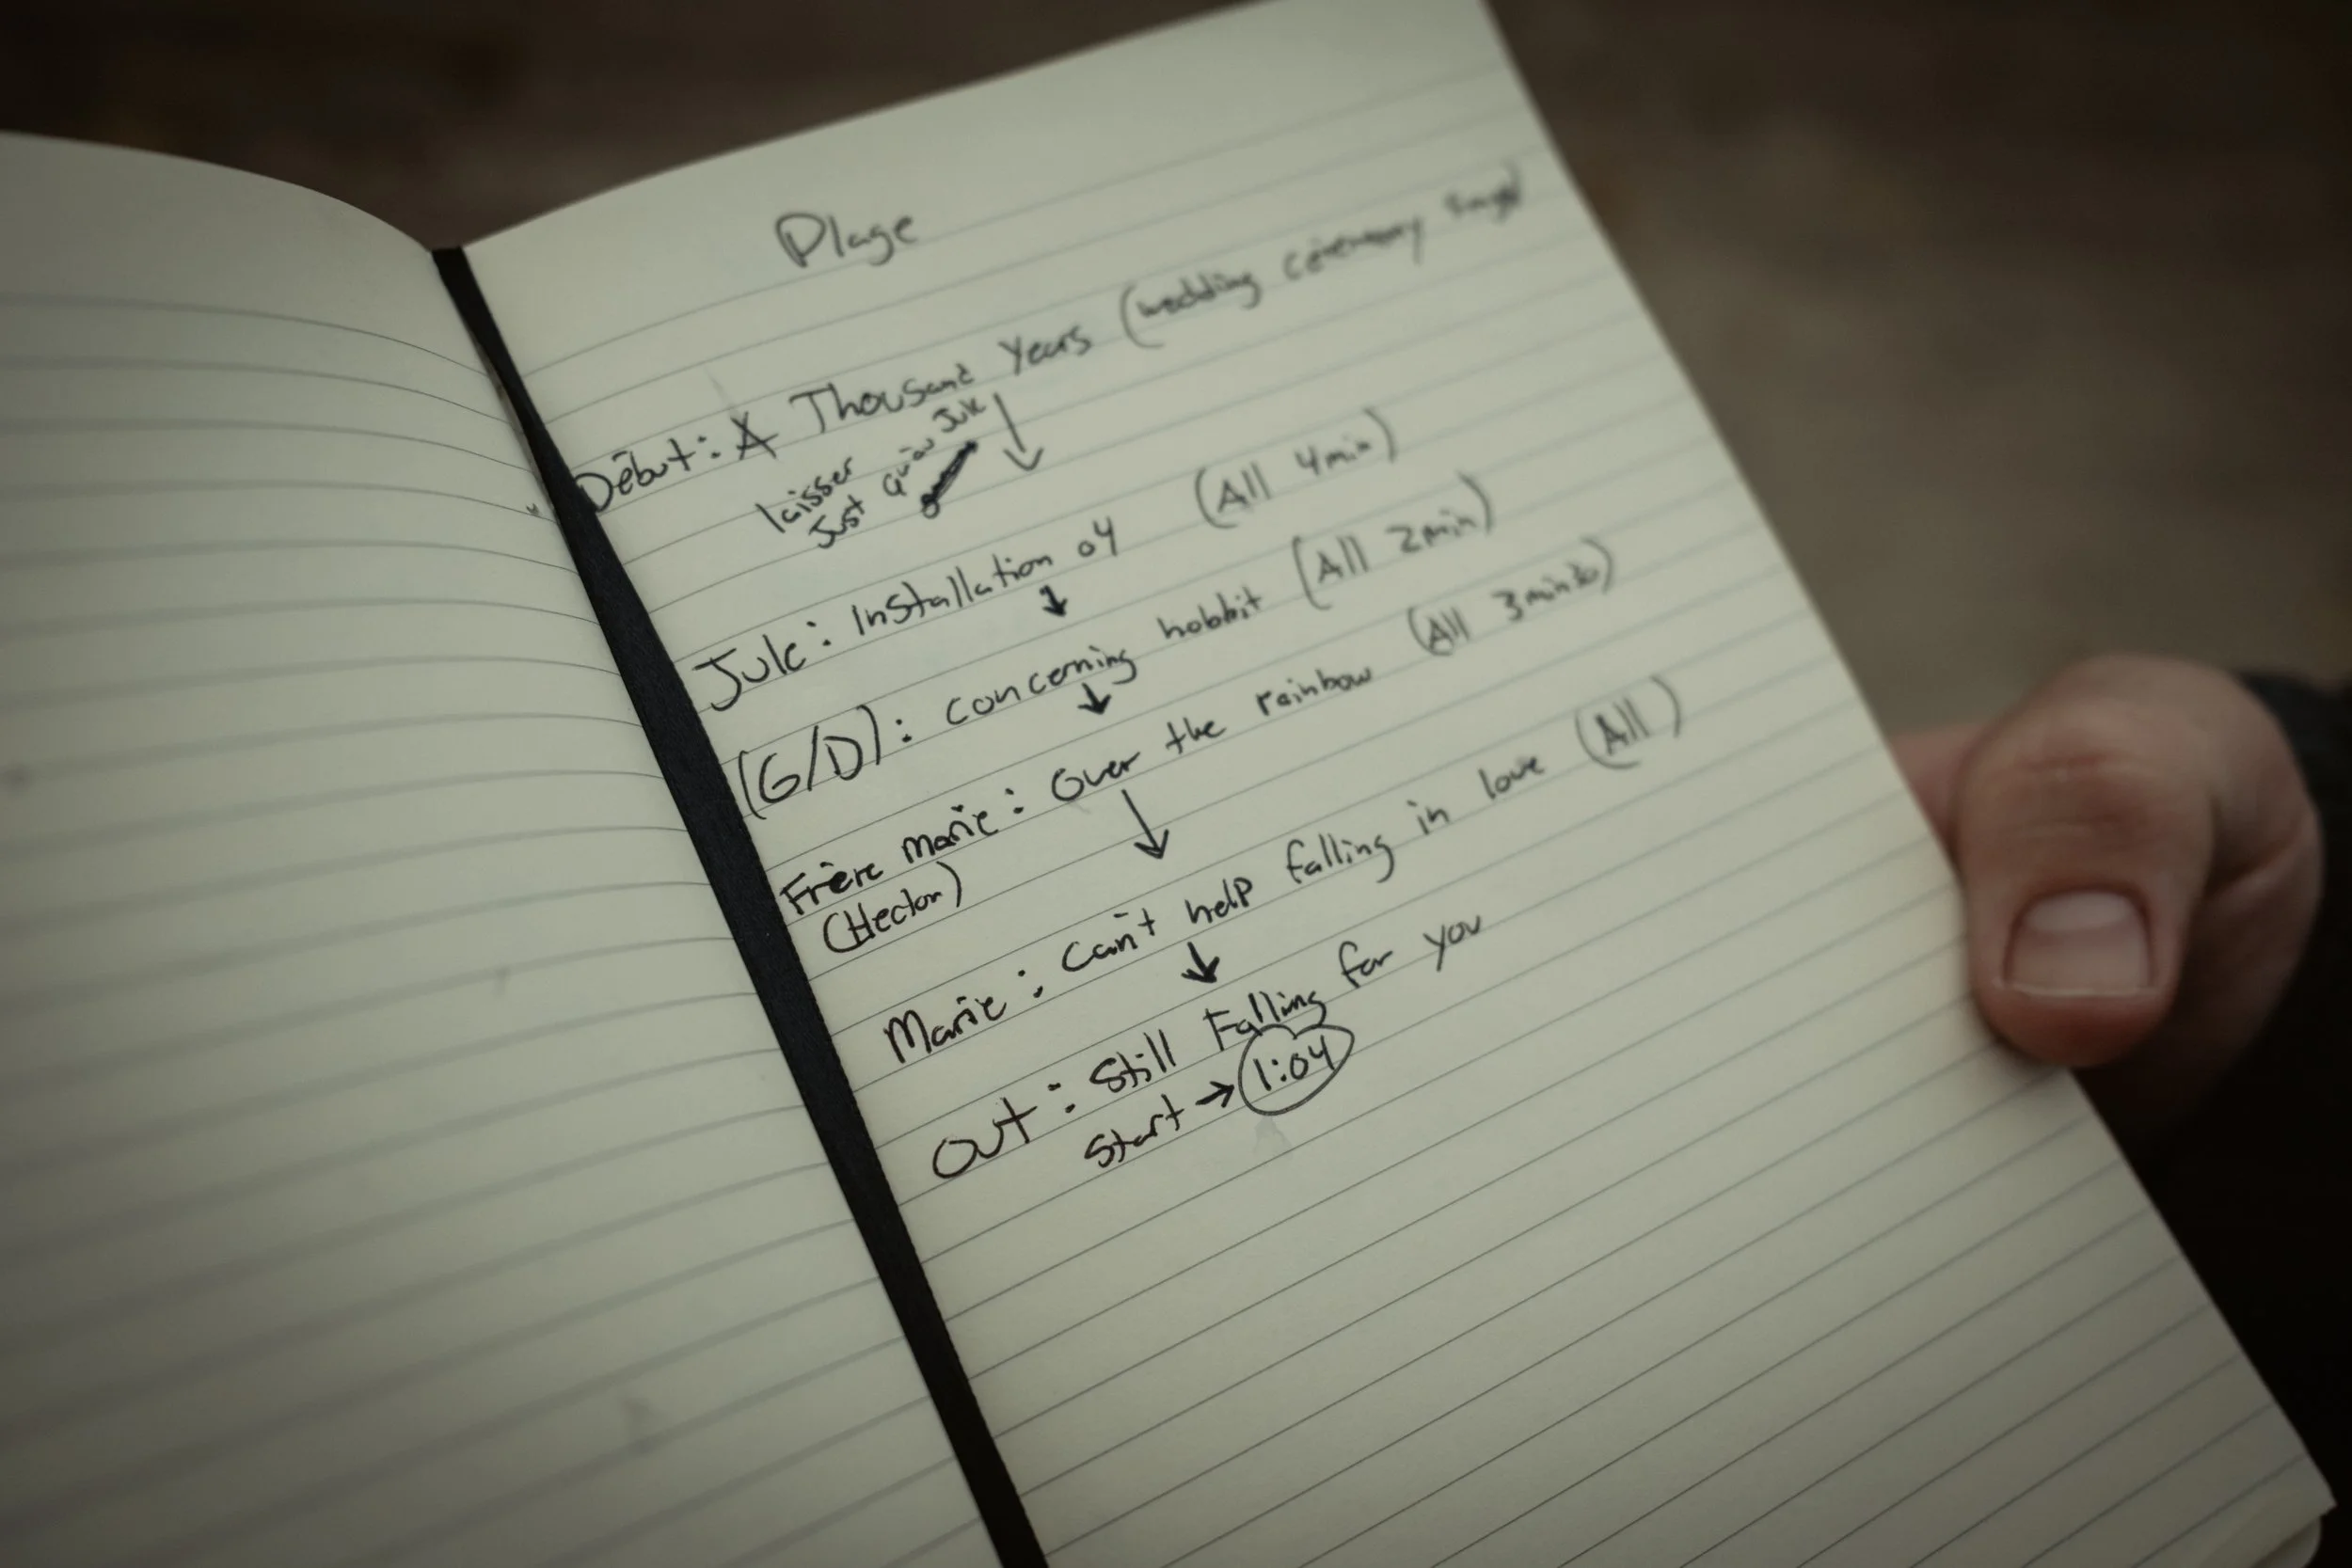 Plage
Début: A Thousand Years (wedding ceremony
laisser
Just qu'au Jule
Jule: Installation 04 (All 4min)
(G/D): concerning hobbit (All 2min)
Frère Marie: Over the rainbow (All 3min30)
(Hector)
Marie: Can't help falling in love (All)
OUT: Still Falling for you
Start → 1:04